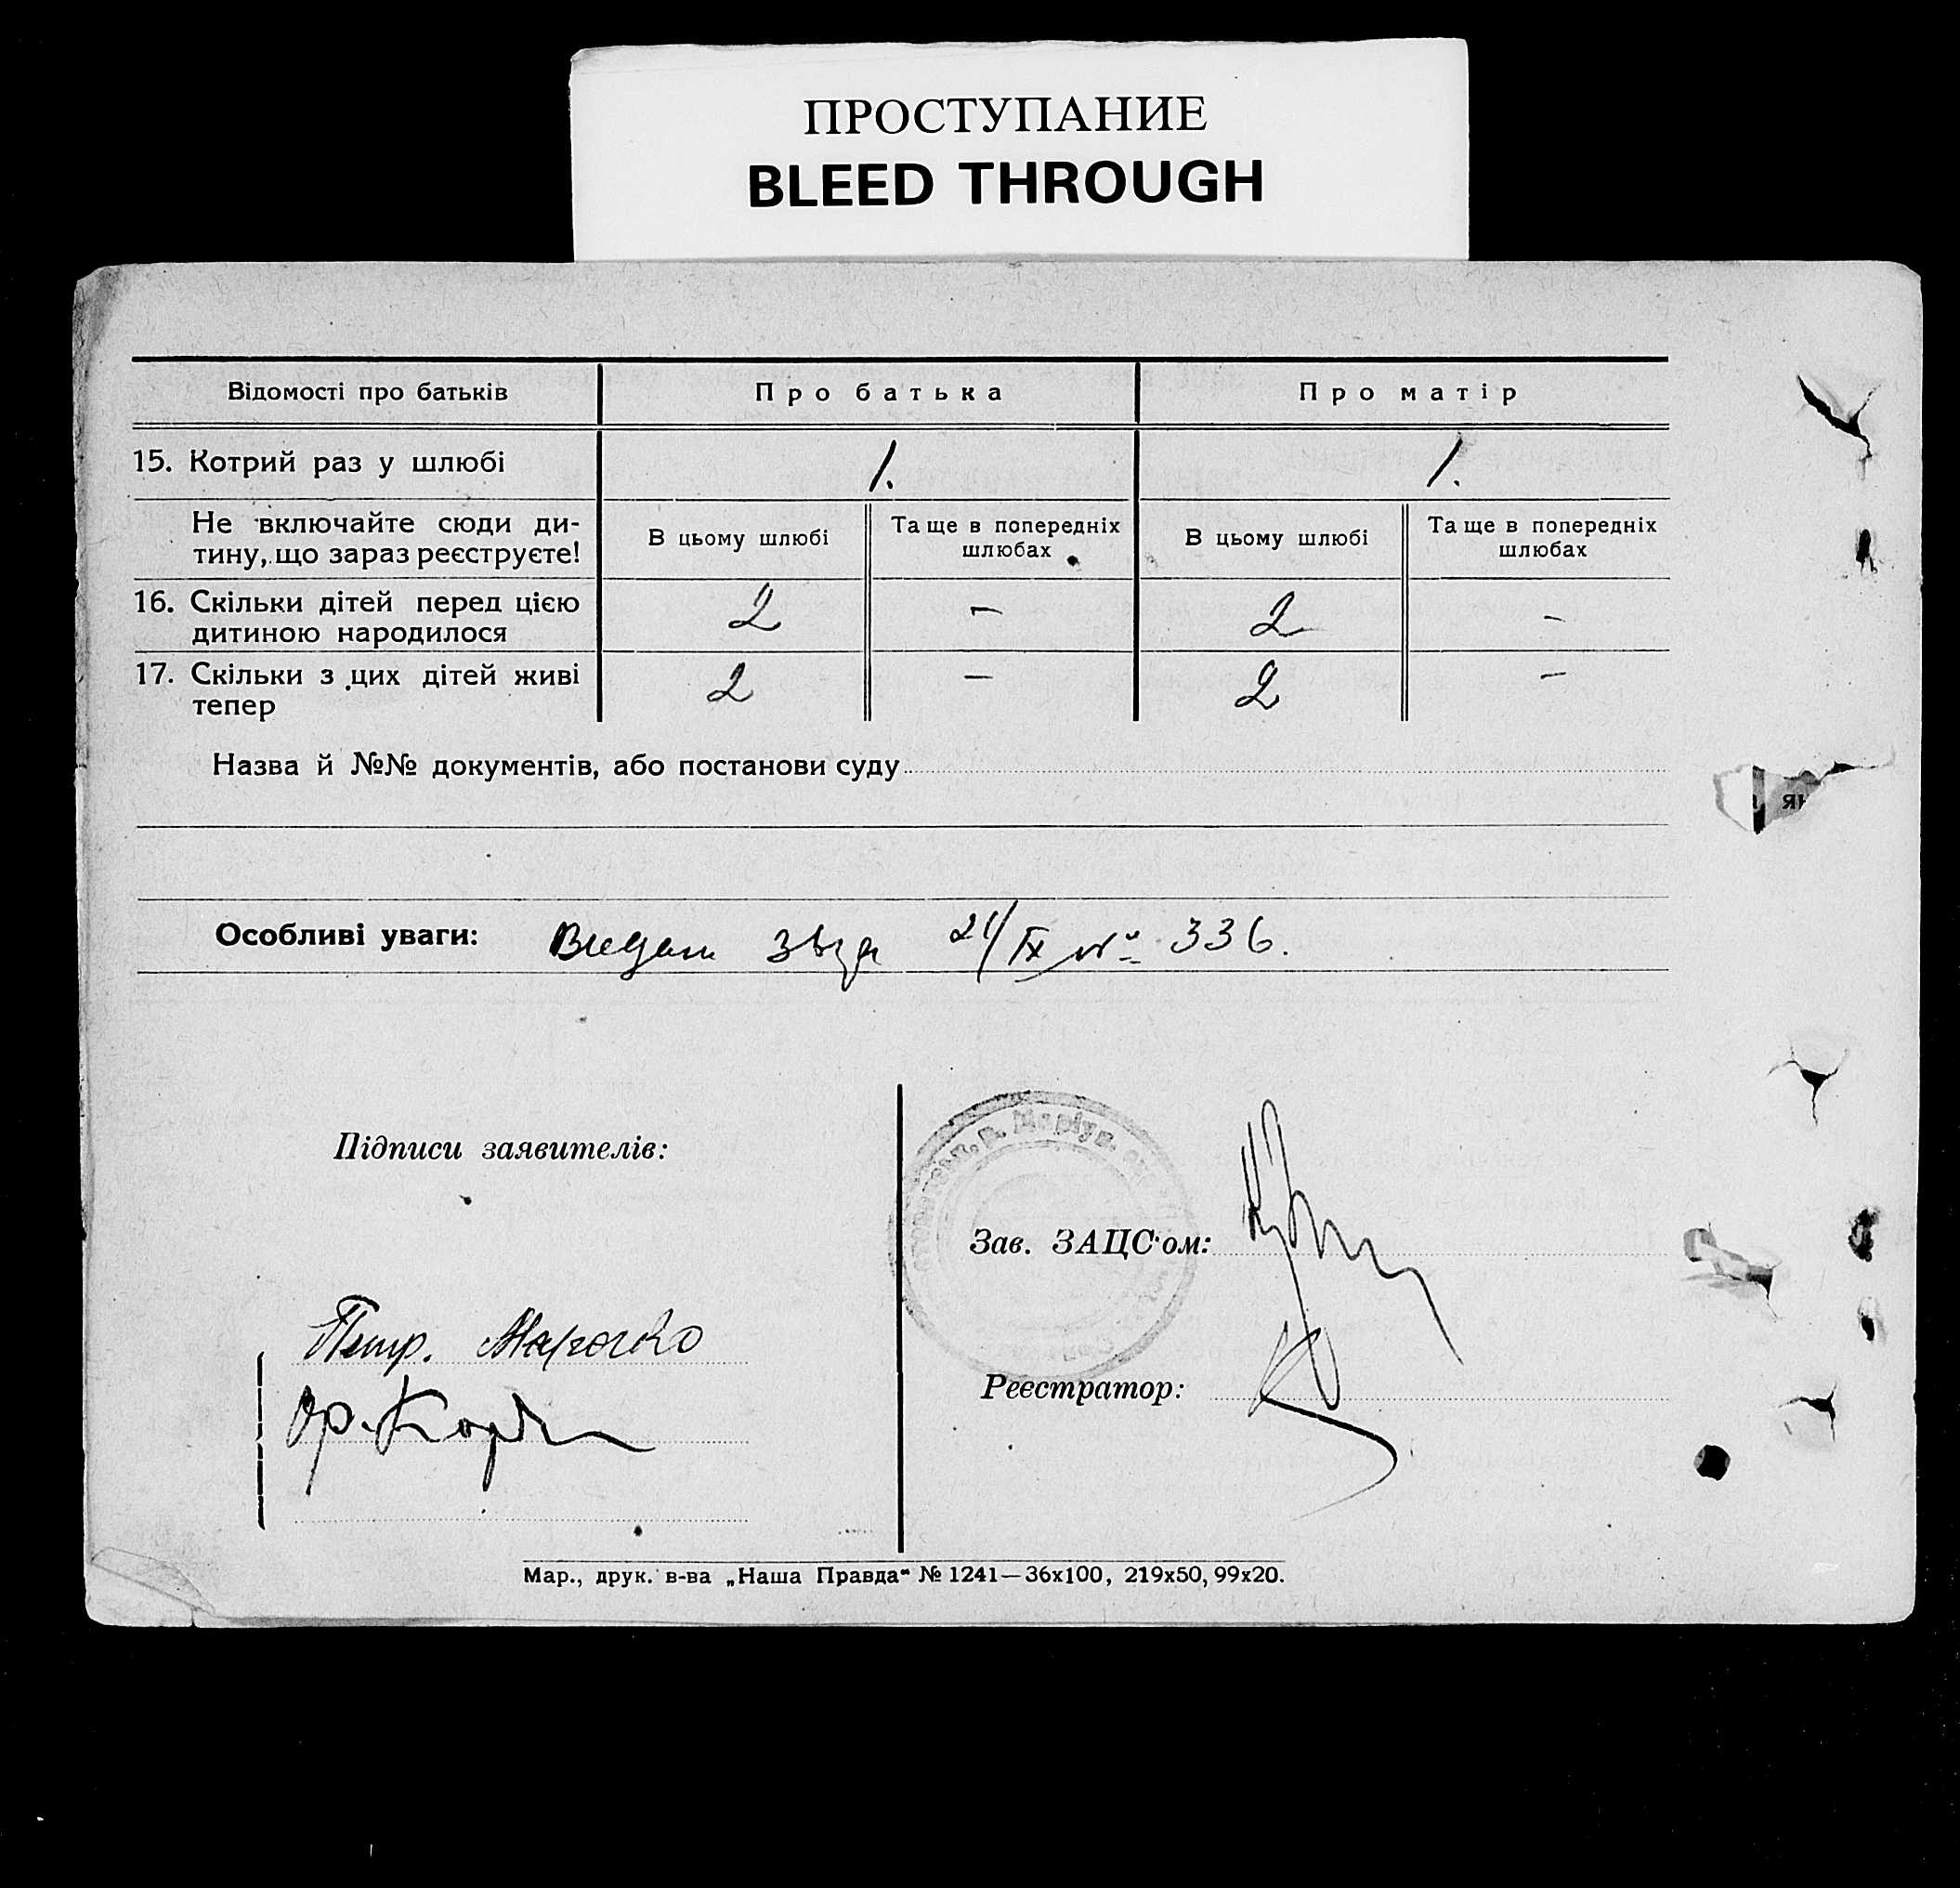 ПРОСТУПАНИЕ
BLEED THROUGH
Відомості про батьків Про батька Про матір
15. Котрий раз у шлюбі 1. 1.
Не включайте сюди ди-
тину, що зараз реєструєте!
В цьому шлюбі Та ще в попередніх шлюбах В цьому шлюбі Та ще в попередніх шлюбах
16. Скільки дітей перед цією
дитиною народилося 2 – 2 –
17. Скільки з цих дітей живі
тепер 2 – 2 –
Назва й №№ документів, або постанови суду
ян
Особливі уваги: 21/IX № 336.
Підписи заявителів:
Зав. ЗАЦС'ом:
Петр.
Реєстратор:
Мар., друк. в-ва „Наша Правда“ № 1241—36х100, 219х50, 99х20.